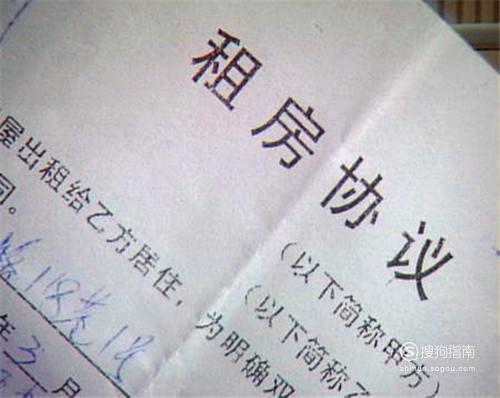 租房协议
（以下简称甲方）
（以下简称乙
屋出租给乙方居住，为明确双
同。
118
年3月
搜狗指南
zhinan.sogou.com